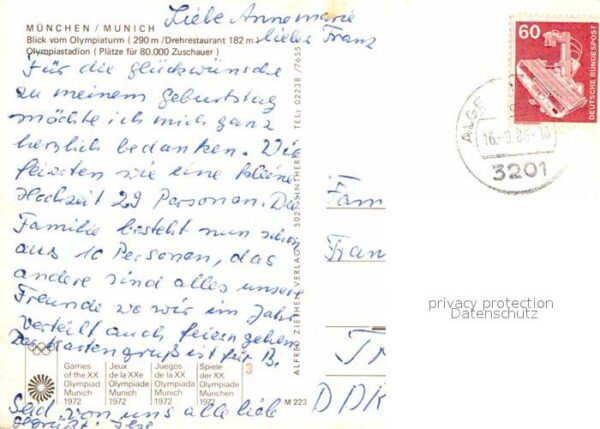 Liebe Annemarie
lieber Franz
MÜNCHEN / MUNICH
Blick vom Olympiaturm ( 290 m / Drehrestaurant 182 m
Olympiastadion ( Plätze für 80.000 Zuschauer )
Für die glückwünsche
zu meinem Geburtstag
möchte ich mich ganz
herzlich bedanken. Wir
feierten wie eine kleine
Hochzeit 29 Personen. Die
Familie besteht nun schon
aus 10 Personen, das
andere sind alles unsere
Freunde wo wir im Jahr
verteilt auch feiern gehen.
Der Kartengruß ist für B.
Games
of the XX
Olympiad
Munich
1972
Jeux
de la XXe
Olympiade
Munich
1972
Juegos
de la XX
Olimpiada
Munich
1972
Spiele
der XX.
Olympiade
München
1972
3
M 223
Seid von uns alle lieb
gegrüßt. Ilse
ALFRED ZIETHEN VERLAG
TEL. 02238 / 7655
60
DEUTSCHE BUNDESPOST
ALGE
3201
Fam
Fran
DDR
privacy protection
Datenschutz